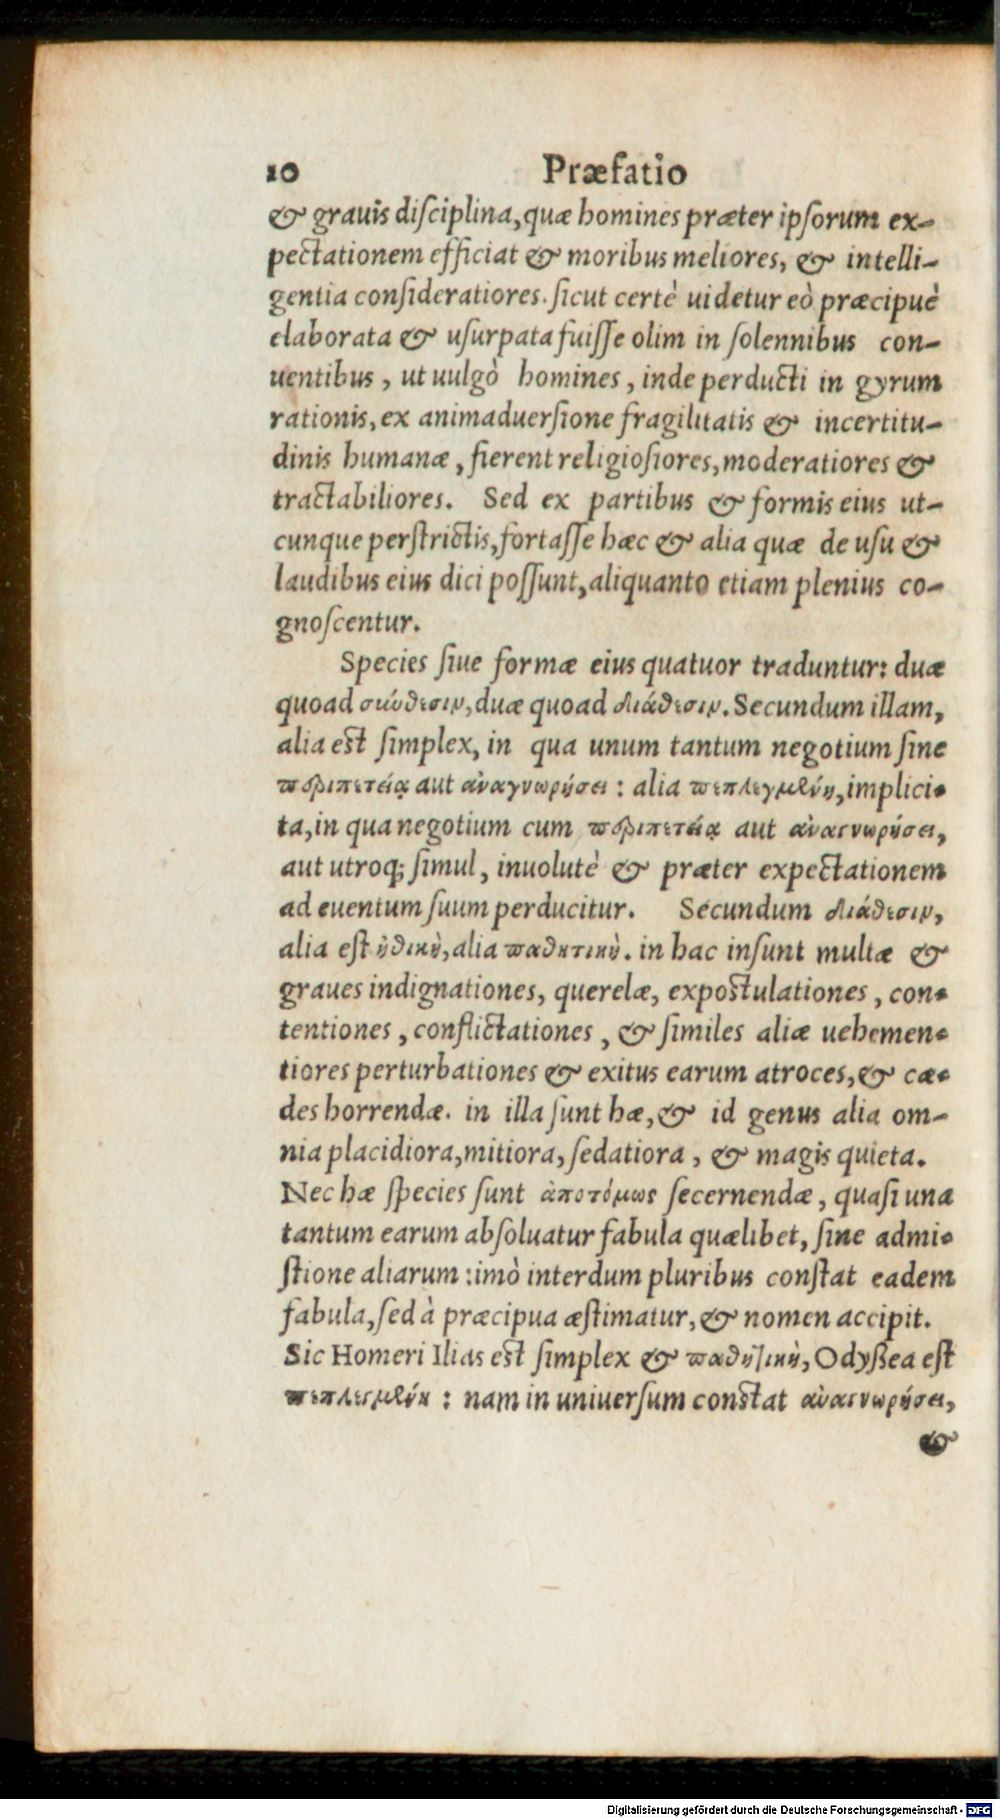 10 Præfatio
& grauis disciplina, quæ homines præter ipsorum ex-
pectationem efficiat & moribus meliores, & intelli-
gentia consideratiores. sicut certè uidetur eò præcipuè
elaborata & usurpata fuisse olim in solennibus con-
uentibus, ut uulgò homines, inde perducti in gyrum
rationis, ex animaduersione fragilitatis & incertitu-
dinis humanæ, fierent religiosiores, moderatiores &
tractabiliores. Sed ex partibus & formis eius ut-
cunque perstrictis, fortasse hæc & alia quæ de usu &
laudibus eius dici possunt, aliquanto etiam plenius co-
gnoscentur.
Species siue formæ eius quatuor traduntur: duæ
quoad σύνθεσιν, duæ quoad διάθεσιν. Secundum illam,
alia est simplex, in qua unum tantum negotium sine
περιπετείᾳ aut ἀναγνωρήσει: alia πεπλεγμένη, implici-
ta, in qua negotium cum περιπετείᾳ aut ἀναγνωρήσει,
aut utroq; simul, inuolutè & præter expectationem
ad euentum suum perducitur. Secundum διάθεσιν,
alia est ἠθικὴ, alia παθητικὴ. in hac insunt multæ &
graues indignationes, querelæ, expostulationes, con-
tentiones, conflictationes, & similes aliæ uehemen-
tiores perturbationes & exitus earum atroces, & cæ-
des horrendæ. in illa sunt hæ, & id genus alia om-
nia placidiora, mitiora, sedatiora, & magis quieta.
Nec hæ species sunt ἀποτόμως secernendæ, quasi una
tantum earum absoluatur fabula quælibet, sine admi-
stione aliarum: imò interdum pluribus constat eadem
fabula, sed à præcipua æstimatur, & nomen accipit.
Sic Homeri Ilias est simplex & παθητικὴ, Odyßea est
πεπλεγμένη: nam in uniuersum constat ἀναγνωρήσει,
&
Digitalisierung gefördert durch die Deutsche Forschungsgemeinschaft - DFG